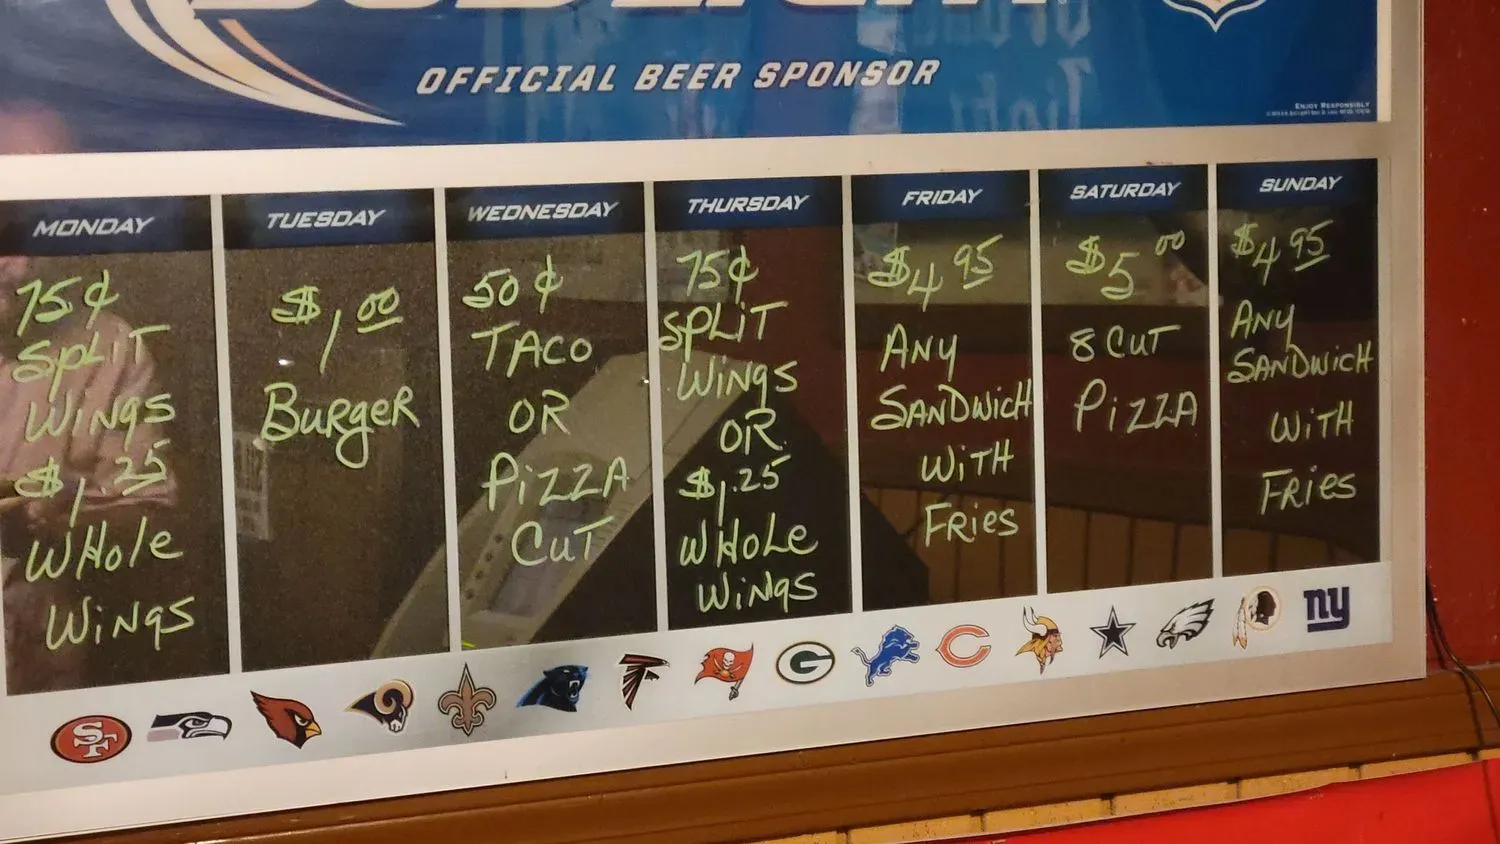 OFFICIAL BEER SPONSOR
ENJOY RESPONSIBLY
MONDAY
75¢
SPLIT
WINGS
$1.25
WHole
WINGS
TUESDAY
$1.00
BURgeR
WEDNESDAY
50¢
TACO
OR
PIZZA
CUT
THURSDAY
75¢
SPLIT
WINGS
OR
$1.25
WHOLe
WINGS
FRIDAY
$4.95
ANY
SANDWICH
WITH
FRIES
SATURDAY
$5.00
8 CUT
PIZZA
SUNDAY
$4.95
ANY
SANDWICH
WITH
FRIES
SF
G
C
ny